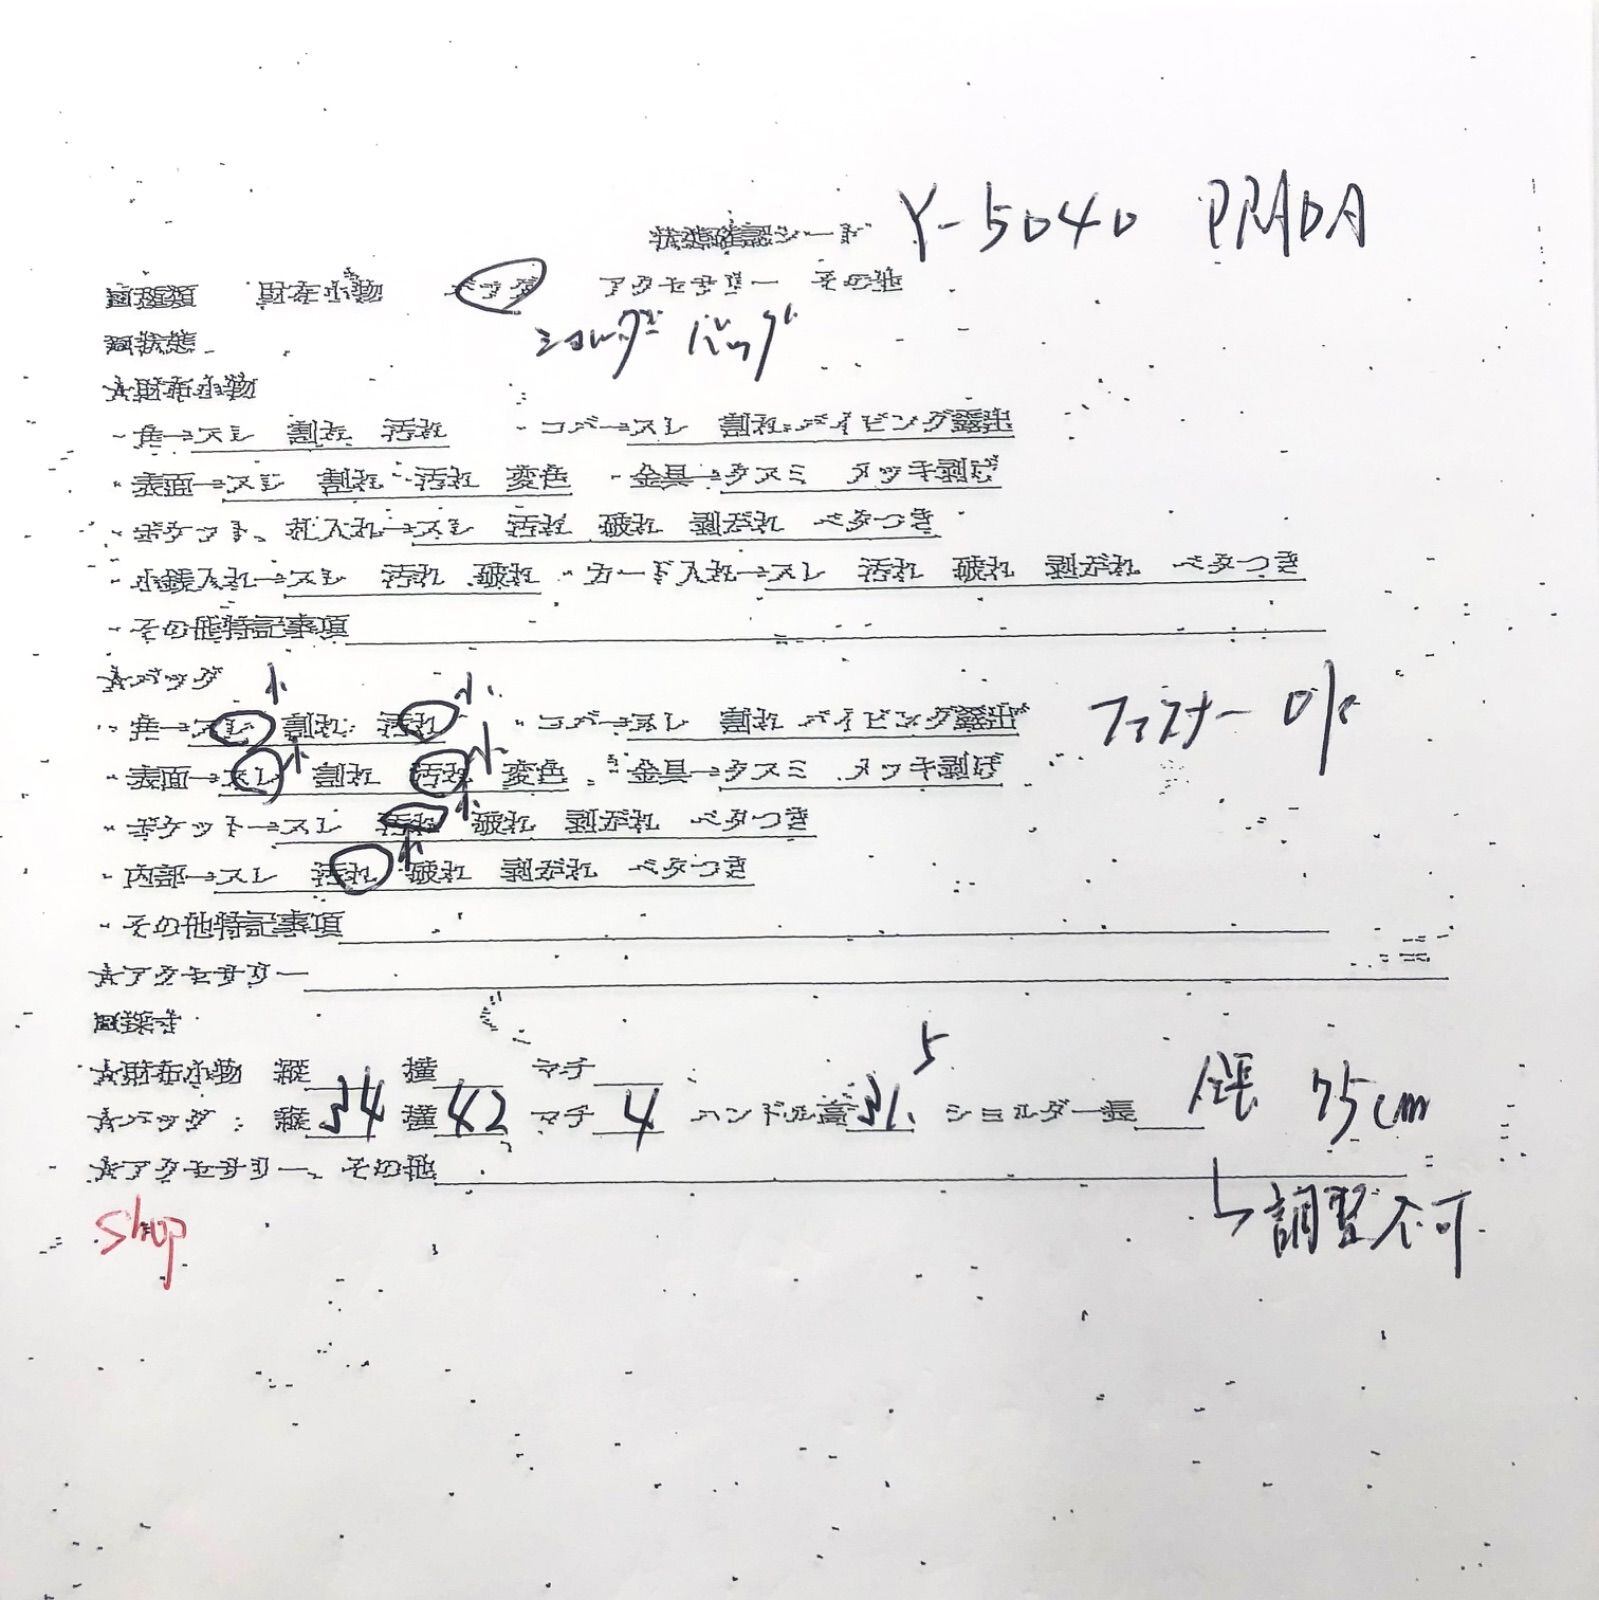 状態確認シート Y-5040 PRADA
■種類 財布小物 バッグ アクセサリー その他
ショルダーバッグ
■状態
★財布小物
・角→スレ 割れ 汚れ ・コバ→スレ 割れ パイピング露出
・表面→スレ 割れ 汚れ 変色 ・金具→クスミ メッキ剥げ
・ポケット、札入れ→スレ 汚れ 破れ 剥がれ ベタつき
・小銭入れ→スレ 汚れ 破れ ・カード入れ→スレ 汚れ 破れ 剥がれ ベタつき
・その他特記事項
★バッグ
小 小
・角→スレ 割れ 汚れ ・コバ→スレ 割れ パイピング露出 ファスナー OK
・表面→スレ 小 割れ 汚れ 小 変色 ・金具→クスミ メッキ剥げ
・ポケット→スレ 汚れ 小 破れ 剥がれ ベタつき
・内部→スレ 汚れ 小 破れ 剥がれ ベタつき
・その他特記事項
★アクセサリー
■採寸
★財布小物 縦 横 マチ
★バッグ 縦34 横42 マチ4 ハンドル高31.5 ショルダー長 全長 75cm
★アクセサリー、その他
↳調整不可
shop